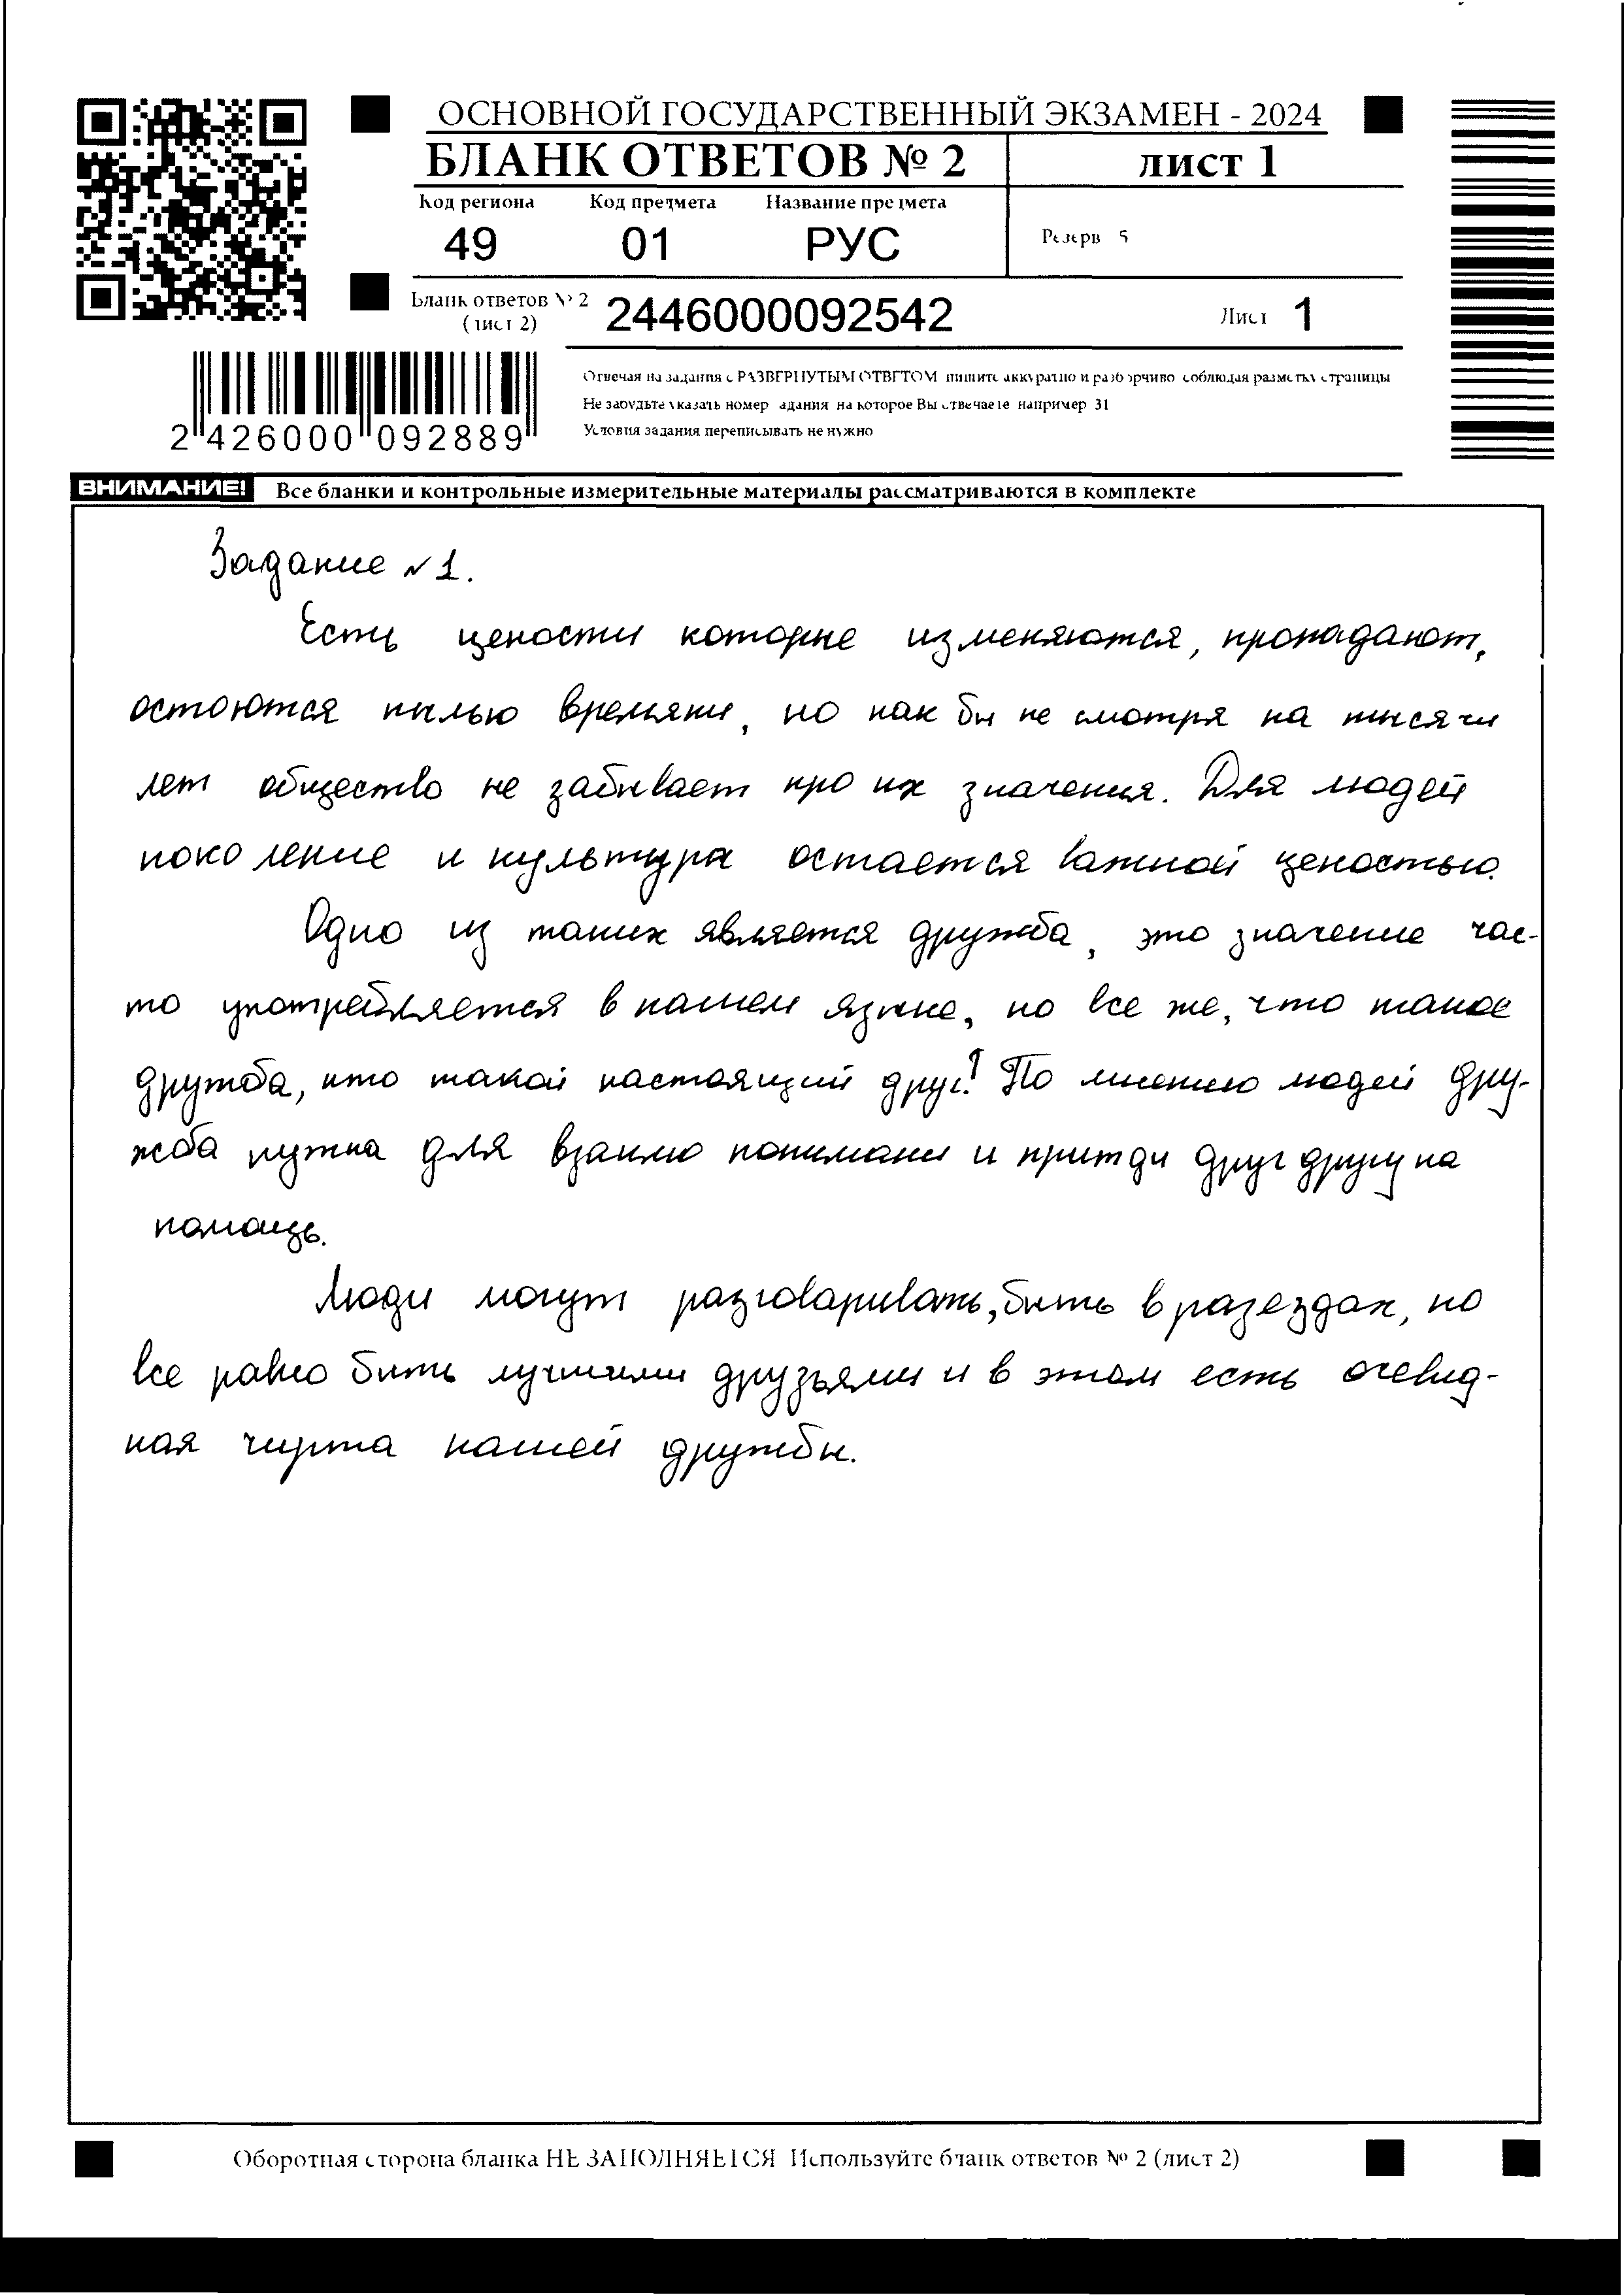 ОСНОВНОЙ ГОСУДАРСТВЕННЫЙ ЭКЗАМЕН - 2024
БЛАНК ОТВЕТОВ № 2
лист 1
Код региона Код предмета Название предмета
49 01 РУС
Резерв 5
Бланк ответов № 2 (лист 2)
2446000092542
Лист 1
2 426000 092889
Отвечая на задания с РАЗВЕРНУТЫМ ОТВЕТОМ пишите аккуратно и разборчиво соблюдая разметку страницы
Не забудьте указать номер задания на которое Вы отвечаете например 31
Условия задания переписывать не нужно
ВНИМАНИЕ! Все бланки и контрольные измерительные материалы рассматриваются в комплекте
Задание №1.
Есть цености которые изменяются, пропадают,
остоются пылью времяни, но как бы не смотря на тысячи
лет общество не забывает про их значения. Для людей
поколение и культура остается важной ценостью.
Одно из таких является дружба, это значение час-
то употребляется в нашем языке, но все же, что такое
дружба, кто такой настоящий друг? По мнению людей дру-
жба нужна для взаимо понимани и притди друг другу на
помощь.
Люди могут разговаривать, быть в разездах, но
все равно быть лучшими друзьями и в этом есть очевид-
ная чирта нашей дружбы.
Оборотная сторона бланка НЕ ЗАПОЛНЯЕТСЯ Используйте бланк ответов № 2 (лист 2)